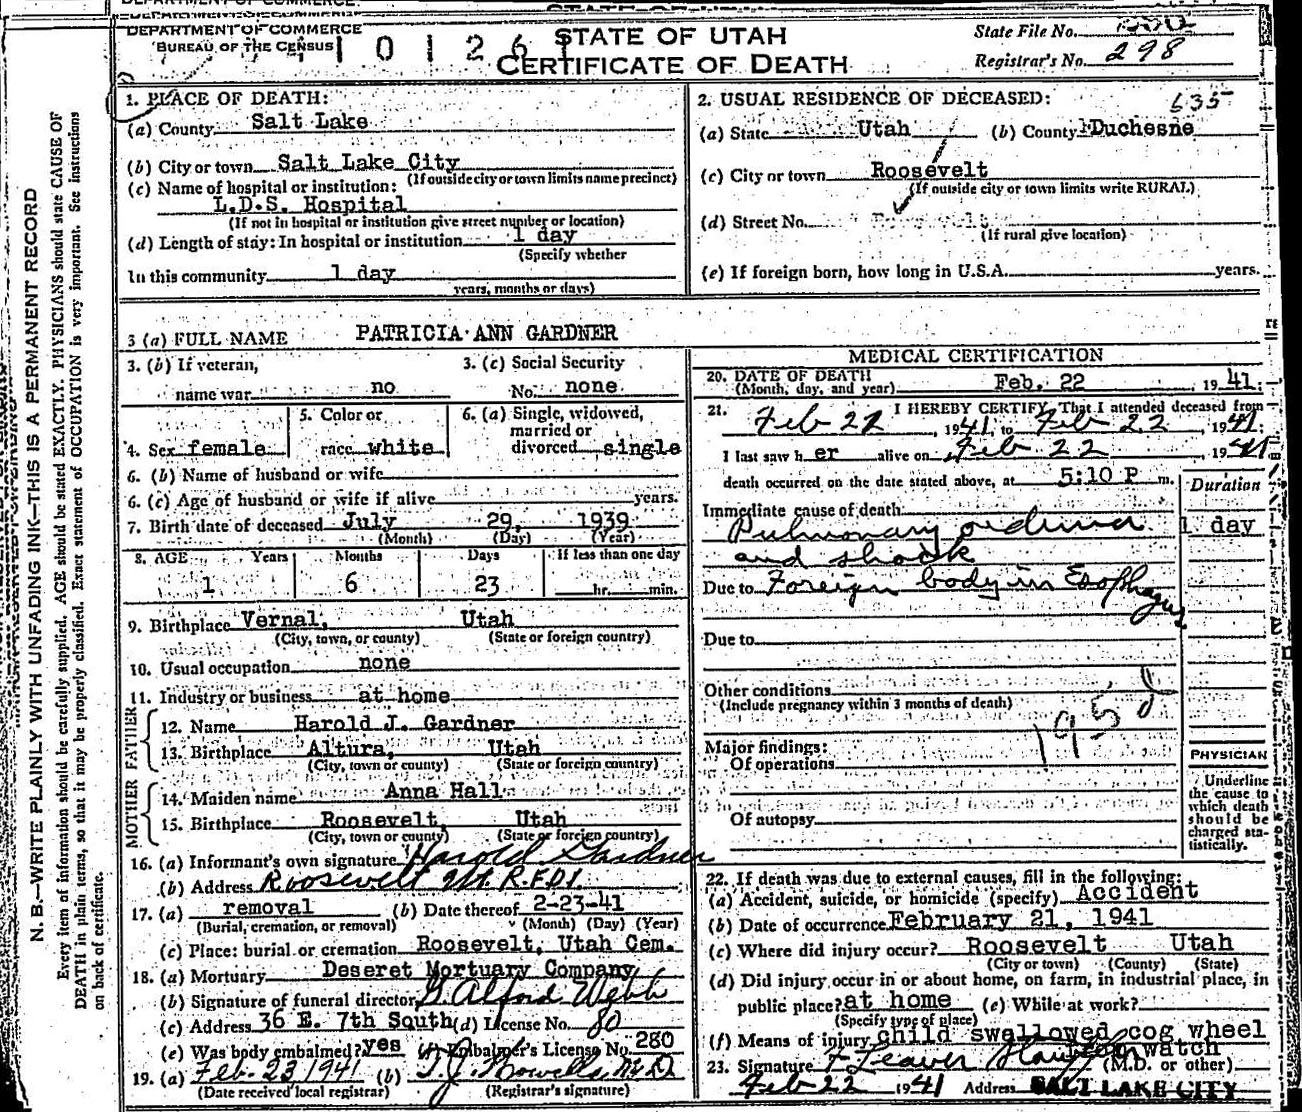 DEPARTMENT OF COMMERCE
BUREAU OF THE CENSUS
STATE OF UTAH
CERTIFICATE OF DEATH
State File No.
Registrar's No. 298
1. PLACE OF DEATH:
(a) County Salt Lake
(b) City or town Salt Lake City
(If outside city or town limits name precinct)
(c) Name of hospital or institution:
L.D.S. Hospital
(If not in hospital or institution give street number or location)
(d) Length of stay: In hospital or institution 1 day
(Specify whether
In this community 1 day
years, months or days)
2. USUAL RESIDENCE OF DECEASED: 635
(a) State Utah (b) County Duchesne
(c) City or town Roosevelt
(If outside city or town limits write RURAL)
(d) Street No.
(If rural give location)
(e) If foreign born, how long in U.S.A. years.
3 (a) FULL NAME PATRICIA ANN GARDNER
3. (b) If veteran,
name war no
3. (c) Social Security
No. none
4. Sex female
5. Color or
race white
6. (a) Single, widowed,
married or
divorced single
6. (b) Name of husband or wife
6. (c) Age of husband or wife if alive years.
7. Birth date of deceased July 29, 1939
(Month) (Day) (Year)
8. AGE Years Months Days If less than one day
1 6 23 hr. min.
9. Birthplace Vernal, Utah
(City, town, or county) (State or foreign country)
10. Usual occupation none
11. Industry or business at home
FATHER
12. Name Harold J. Gardner
13. Birthplace Altura, Utah
(City, town or county) (State or foreign country)
MOTHER
14. Maiden name Anna Hall
15. Birthplace Roosevelt, Utah
(City, town or county) (State or foreign country)
16. (a) Informant's own signature Harold Gardner
(b) Address Roosevelt Ut. R.F.D.1.
17. (a) removal (b) Date thereof 2-23-41
(Burial, cremation, or removal) (Month) (Day) (Year)
(c) Place: burial or cremation Roosevelt, Utah Cem.
18. (a) Mortuary Deseret Mortuary Company
(b) Signature of funeral director Alford Webb
(c) Address 36 E. 7th South (d) License No. 80
(e) Was body embalmed? yes (f) Embalmer's License No. 280
19. (a) Feb. 23 1941 (b) T. J. Howells M.D.
(Date received local registrar) (Registrar's signature)
MEDICAL CERTIFICATION
20. DATE OF DEATH
(Month, day, and year) Feb. 22, 1941
21. I HEREBY CERTIFY, That I attended deceased from
Feb 22, 1941, to Feb 22, 1941;
I last saw her alive on Feb 22, 1941
death occurred on the date stated above, at 5:10 P m.
Duration
Immediate cause of death
Pulmonary oedema 1 day
and shock
Due to Foreign body in Esophagus
Due to
Other conditions
(Include pregnancy within 3 months of death)
195
Major findings:
Of operations
Of autopsy
PHYSICIAN
Underline
the cause to
which death
should be
charged sta-
tistically.
22. If death was due to external causes, fill in the following:
(a) Accident, suicide, or homicide (specify) Accident
(b) Date of occurrence February 21, 1941
(c) Where did injury occur? Roosevelt Utah
(City or town) (County) (State)
(d) Did injury occur in or about home, on farm, in industrial place, in
public place? at home (e) While at work?
(Specify type of place)
(f) Means of injury child swallowed cog wheel
watch
23. Signature (M.D. or other)
Feb 22 1941 Address SALT LAKE CITY
N. B.—WRITE PLAINLY WITH UNFADING INK—THIS IS A PERMANENT RECORD
Every item of information should be carefully supplied. AGE should be stated EXACTLY. PHYSICIANS should state CAUSE OF
DEATH in plain terms, so that it may be properly classified. Exact statement of OCCUPATION is very important. See instructions
on back of certificate.